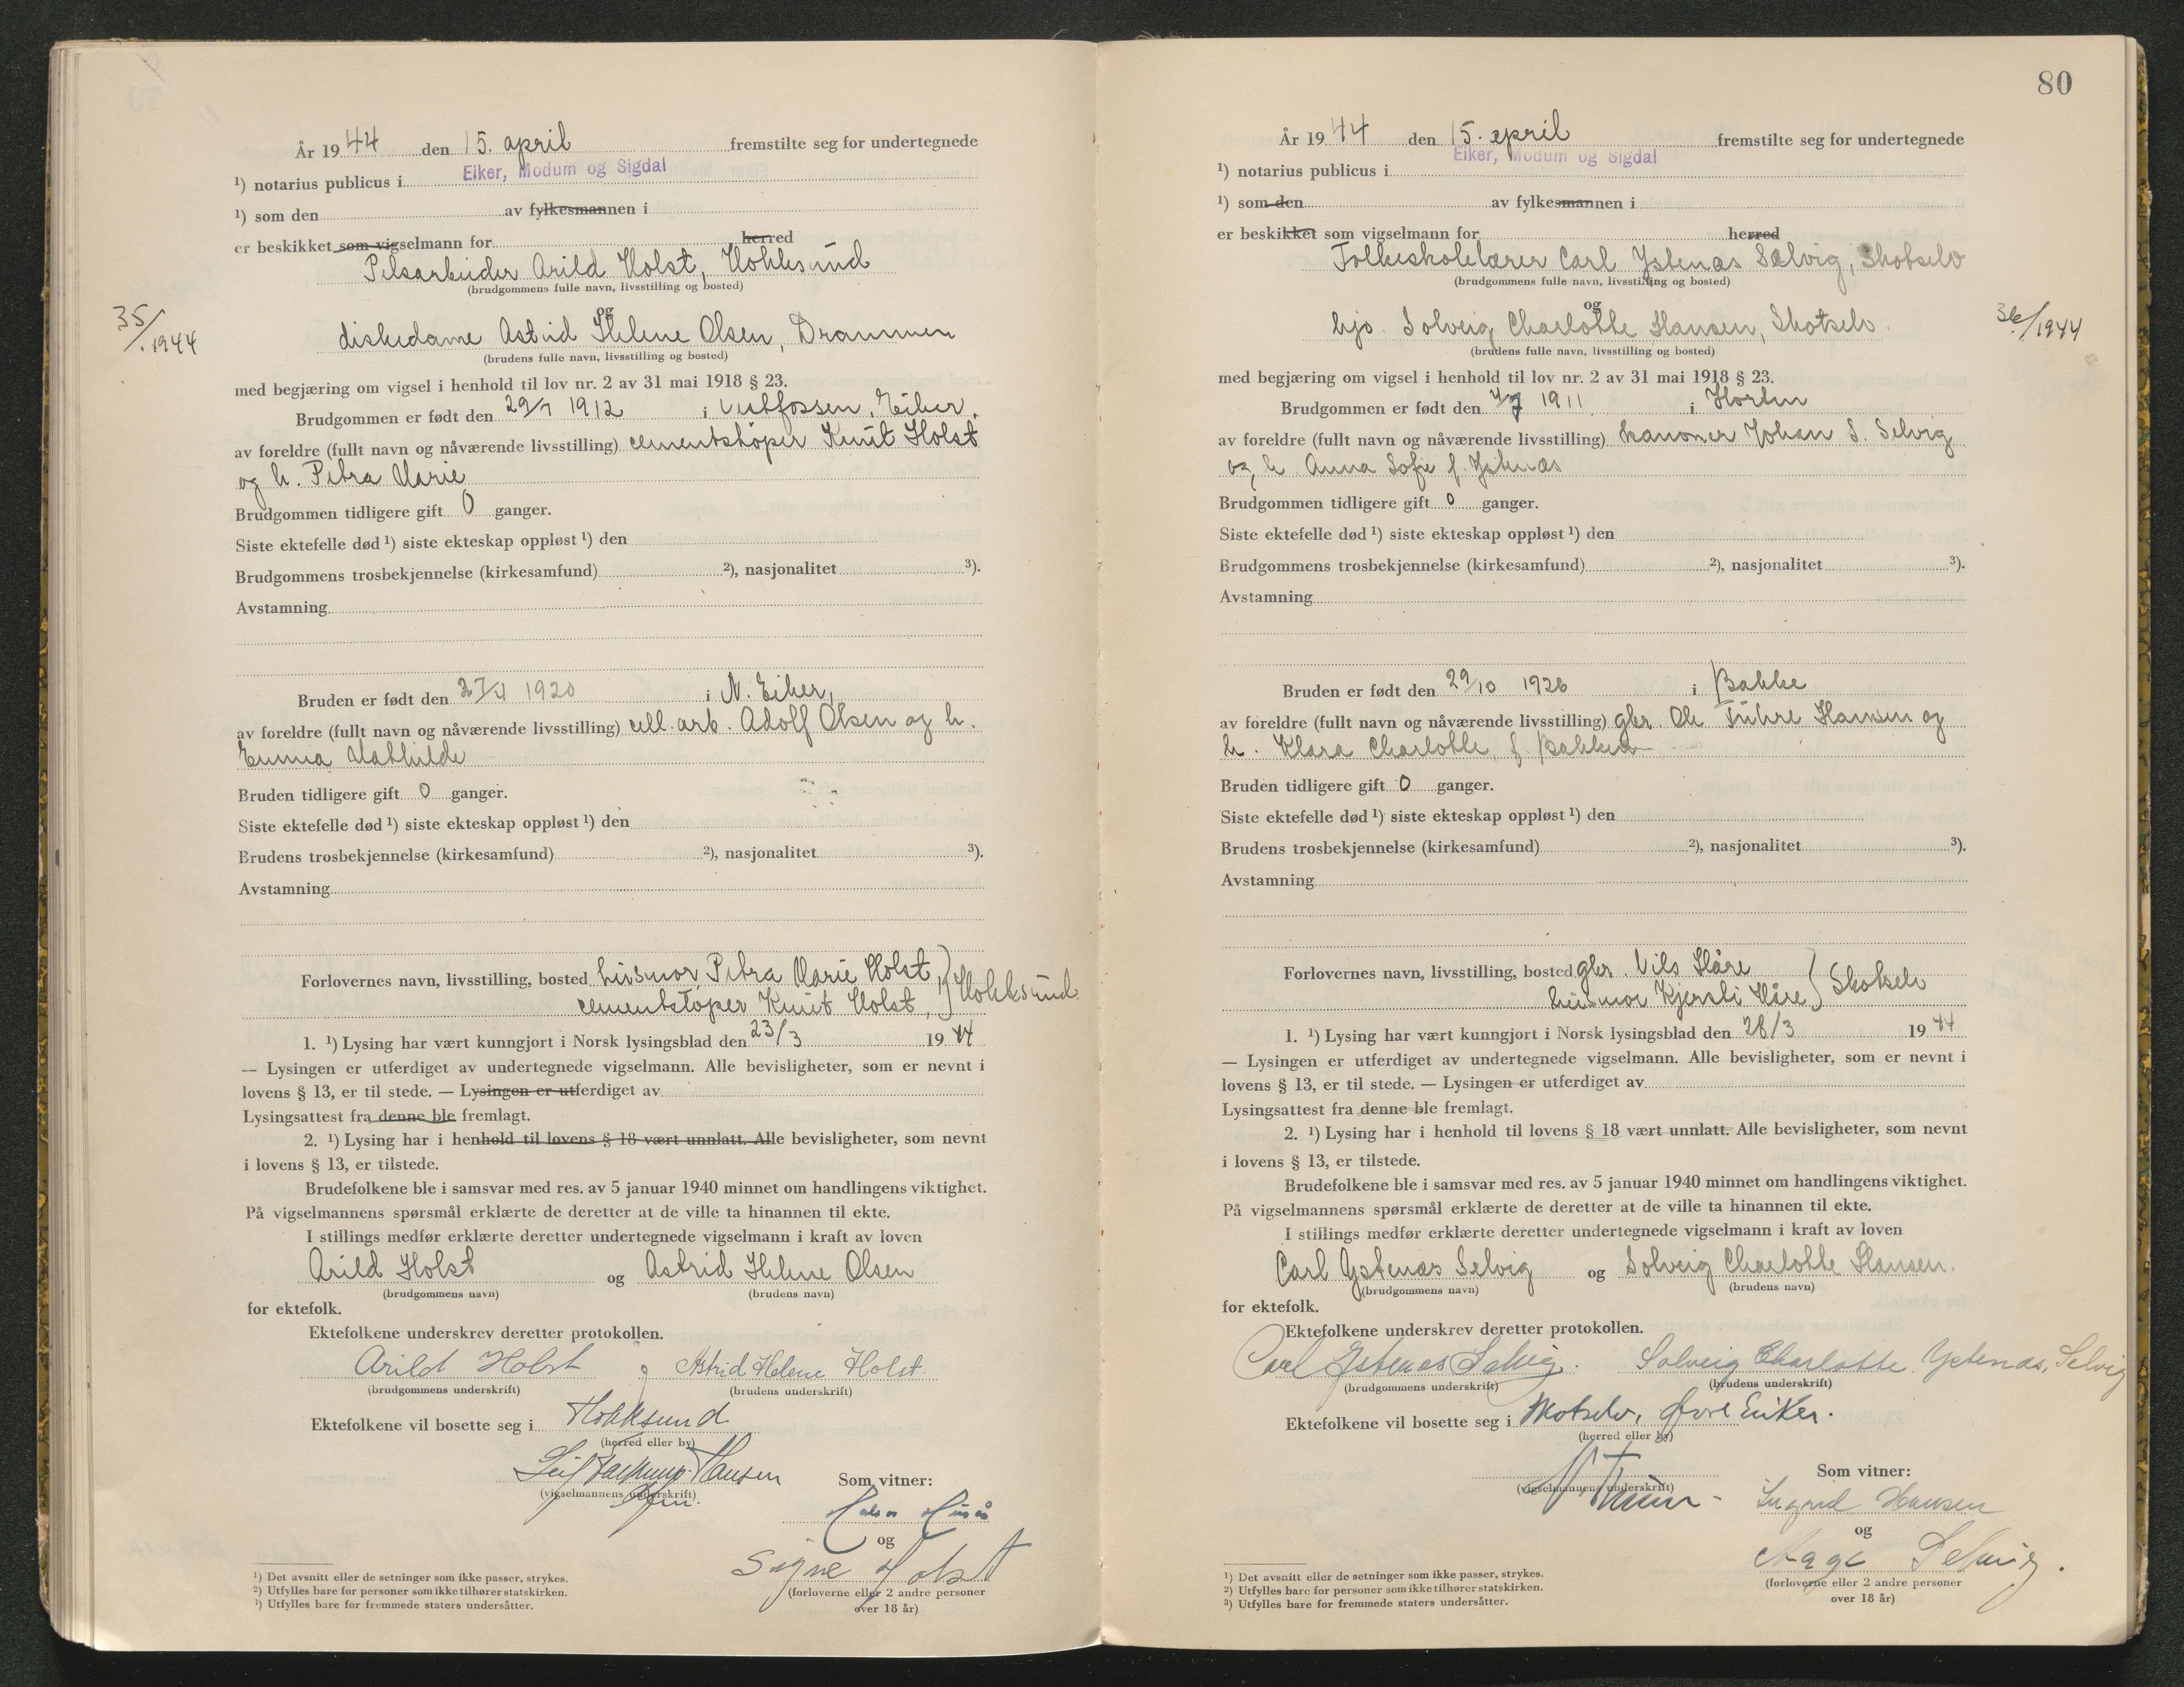 År 1944 den 15. april fremstilte seg for undertegnede
¹) notarius publicus i Eiker, Modum og Sigdal
¹) som den av fylkesmannen i
er beskikket som vigselmann for herred
Pelsarbeider Arild Holst, Hokksund
(brudgommens fulle navn, livsstilling og bosted)
og
35/1944
diskedame Astrid Helene Olsen, Drammen
(brudens fulle navn, livsstilling og bosted)
med begjæring om vigsel i henhold til lov nr. 2 av 31 mai 1918 § 23.
Brudgommen er født den 29/7 1912 i Vestfossen, Eiker,
av foreldre (fullt navn og nåværende livsstilling) cementstøper Knut Holst
og h. Petra Marie
Brudgommen tidligere gift 0 ganger.
Siste ektefelle død ¹) siste ekteskap oppløst ¹) den
Brudgommens trosbekjennelse (kirkesamfund) ²), nasjonalitet ³).
Avstamning
Bruden er født den 27/4 1920 i N. Eiker,
av foreldre (fullt navn og nåværende livsstilling) cell.arb. Adolf Olsen og h.
Emma Mathilde
Bruden tidligere gift 0 ganger.
Siste ektefelle død ¹) siste ekteskap oppløst ¹) den
Brudens trosbekjennelse (kirkesamfund) ²), nasjonalitet ³).
Avstamning
Forlovernes navn, livsstilling, bosted husmor Petra Marie Holst, } Hokksund
cementstøper Knut Holst,
1. ¹) Lysing har vært kunngjort i Norsk lysingsblad den 23/3 1944
— Lysingen er utferdiget av undertegnede vigselmann. Alle bevisligheter, som er nevnt i
lovens § 13, er til stede. — Lysingen er utferdiget av
Lysingsattest fra denne ble fremlagt.
2. ¹) Lysing har i henhold til lovens § 18 vært unnlatt. Alle bevisligheter, som nevnt
i lovens § 13, er tilstede.
Brudefolkene ble i samsvar med res. av 5 januar 1940 minnet om handlingens viktighet.
På vigselmannens spørsmål erklærte de deretter at de ville ta hinannen til ekte.
I stillings medfør erklærte deretter undertegnede vigselmann i kraft av loven
Arild Holst og Astrid Helene Olsen
(brudgommens navn) (brudens navn)
for ektefolk.
Ektefolkene underskrev deretter protokollen.
Arild Holst og Astrid Helene Holst.
(brudgommens underskrift) (brudens underskrift)
Ektefolkene vil bosette seg i Hokksund
(herred eller by)
Leif Hansen Som vitner:
(vigselmannens underskrift)
og
Signe Holst
(forloverne eller 2 andre personer
over 18 år)
¹) Det avsnitt eller de setninger som ikke passer, strykes.
²) Utfylles bare for personer som ikke tilhører statskirken.
³) Utfylles bare for fremmede staters undersåtter.
80
År 1944 den 15. april fremstilte seg for undertegnede
¹) notarius publicus i Eiker, Modum og Sigdal
¹) som den av fylkesmannen i
er beskikket som vigselmann for herred
Folkeskolelærer Carl Ystenæs Selvig, Skotselv
(brudgommens fulle navn, livsstilling og bosted)
og
hjv. Solveig Charlotte Hansen, Skotselv.
36/1944
(brudens fulle navn, livsstilling og bosted)
med begjæring om vigsel i henhold til lov nr. 2 av 31 mai 1918 § 23.
Brudgommen er født den 4/7 1911 i Horten
av foreldre (fullt navn og nåværende livsstilling) kanoner Johan S. Selvig
og h. Anna Sofie f. Ystenæs
Brudgommen tidligere gift 0 ganger.
Siste ektefelle død ¹) siste ekteskap oppløst ¹) den
Brudgommens trosbekjennelse (kirkesamfund) ²), nasjonalitet ³).
Avstamning
Bruden er født den 29/10 1926 i Bakke
av foreldre (fullt navn og nåværende livsstilling) gbr. Ole Hansen og
h. Klara Charlotte, f. Bakken
Bruden tidligere gift 0 ganger.
Siste ektefelle død ¹) siste ekteskap oppløst ¹) den
Brudens trosbekjennelse (kirkesamfund) ²), nasjonalitet ³).
Avstamning
Forlovernes navn, livsstilling, bosted gbr. Nils Håre } Skotselv
husmor Kjersti Håre
1. ¹) Lysing har vært kunngjort i Norsk lysingsblad den 28/3 1944
— Lysingen er utferdiget av undertegnede vigselmann. Alle bevisligheter, som er nevnt i
lovens § 13, er til stede. — Lysingen er utferdiget av
Lysingsattest fra denne ble fremlagt.
2. ¹) Lysing har i henhold til lovens § 18 vært unnlatt. Alle bevisligheter, som nevnt
i lovens § 13, er tilstede.
Brudefolkene ble i samsvar med res. av 5 januar 1940 minnet om handlingens viktighet.
På vigselmannens spørsmål erklærte de deretter at de ville ta hinannen til ekte.
I stillings medfør erklærte deretter undertegnede vigselmann i kraft av loven
Carl Ystenæs Selvig og Solveig Charlotte Hansen.
(brudgommens navn) (brudens navn)
for ektefolk.
Ektefolkene underskrev deretter protokollen.
Carl Ystenæs Selvig. Solveig Charlotte Ystenæs, Selvig
(brudgommens underskrift) (brudens underskrift)
Ektefolkene vil bosette seg i Skotselv, Øvre Eiker.
(herred eller by)
Som vitner:
(vigselmannens underskrift)
Ingrid Hansen
og
Aage Selvig.
(forloverne eller 2 andre personer
over 18 år)
¹) Det avsnitt eller de setninger som ikke passer, strykes.
²) Utfylles bare for personer som ikke tilhører statskirken.
³) Utfylles bare for fremmede staters undersåtter.